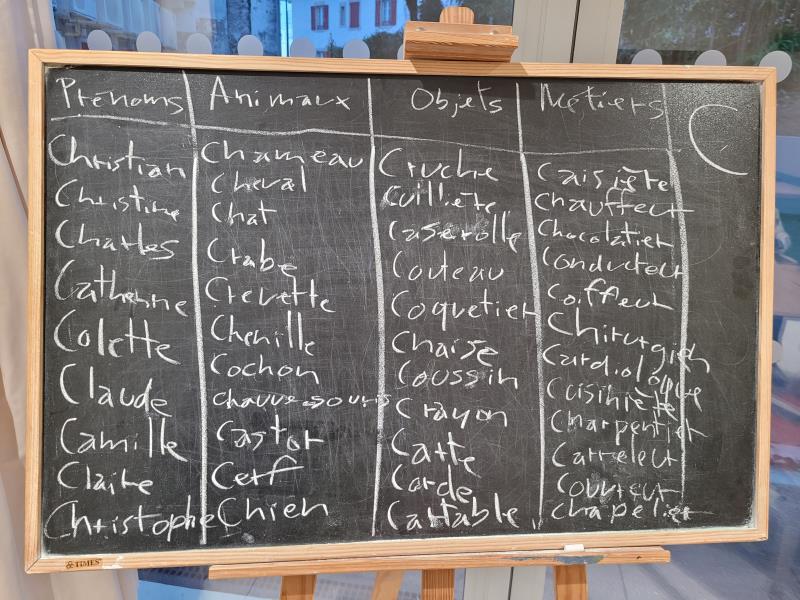 Prénoms
Christian
Christine
Charles
Catherine
Colette
Claude
Camille
Claire
Christophe
Animaux
Chameau
Cheval
Chat
Crabe
Crevette
Chenille
Cochon
chauve-souris
Castor
Cerf
Chien
Objets
Cruche
Cuillière
Caserolle
Couteau
Coquetier
Chaise
Coussin
Crayon
Carte
Corde
Cartable
Métiers
Caisière
Chauffeur
Chocolatier
Conducteur
Coiffeur
Chirurgien
Cardiologue
Cuisinière
Charpentier
Carreleur
Couvreur
chapelier
C
&TIMES